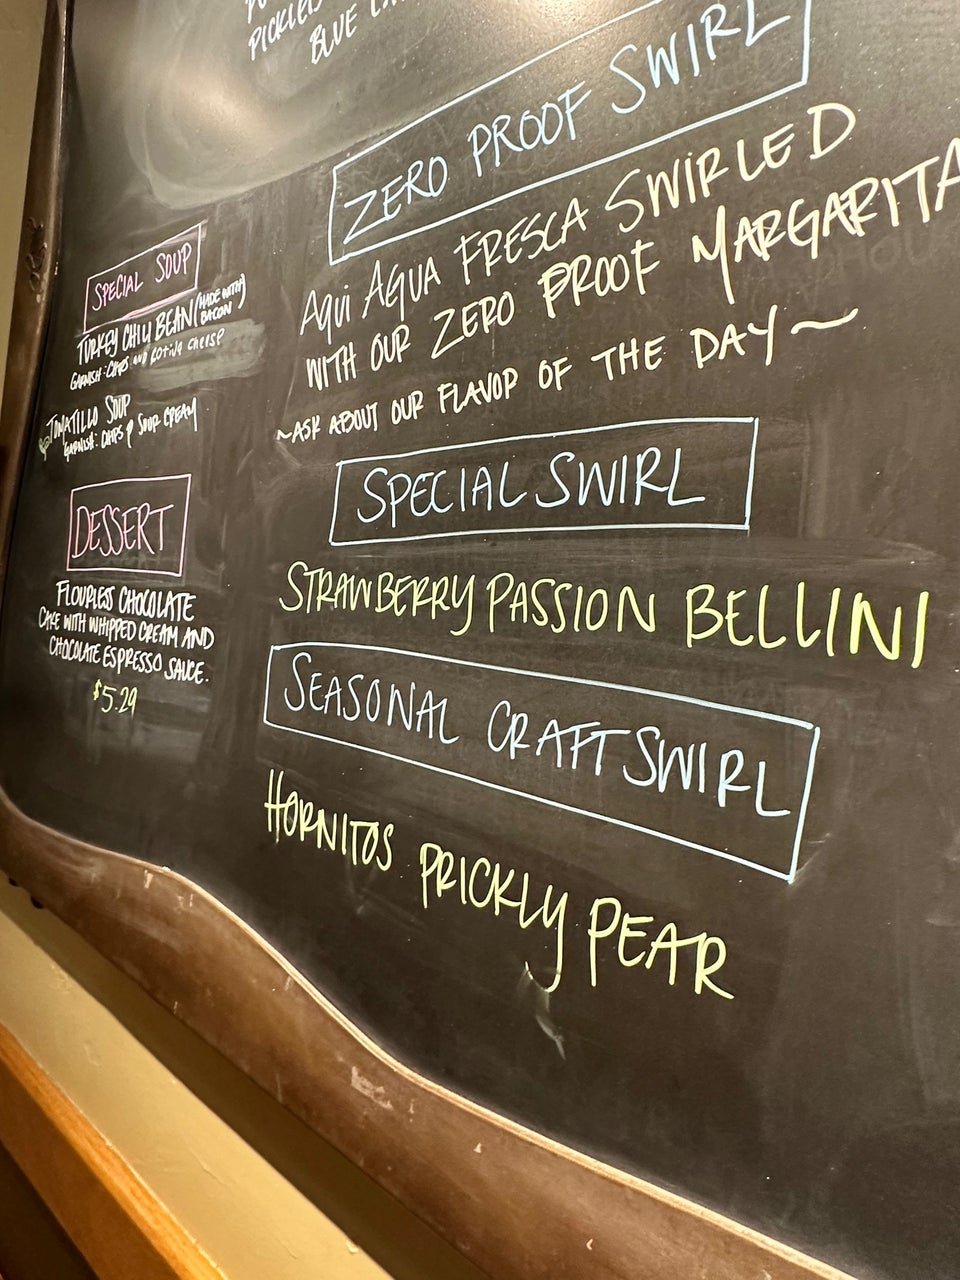 PICKLED
BLUE
SPECIAL SOUP
TURKEY CHILI BEAN (MADE WITH BACON)
GARNISH: CHIPS AND COTIJA CHEESE
TOMATILLO SOUP
GARNISH: CHIPS & SOUR CREAM
DESSERT
FLOURLESS CHOCOLATE
CAKE WITH WHIPPED CREAM AND
CHOCOLATE ESPRESSO SAUCE.
$5.29
ZERO PROOF SWIRL
AQUI AGUA FRESCA SWIRLED
WITH OUR ZERO PROOF MARGARITA
~ASK ABOUT OUR FLAVOR OF THE DAY~
SPECIAL SWIRL
STRAWBERRY PASSION BELLINI
SEASONAL CRAFT SWIRL
HORNITOS PRICKLY PEAR